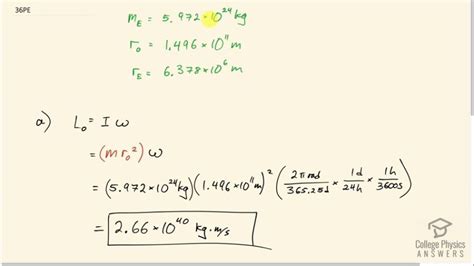 36PE
m_E = 5.972 × 10^24 kg
r_o = 1.496 × 10^11 m
r_E = 6.378 × 10^6 m
a) L_o = I ω
= (m r_o^2) ω
= (5.972 × 10^24 kg)(1.496 × 10^11 m)^2 (2π rad/365.25d × 1d/24h × 1h/3600s)
= 2.66 × 10^40 kg·m/s
College Physics
ANSWERS